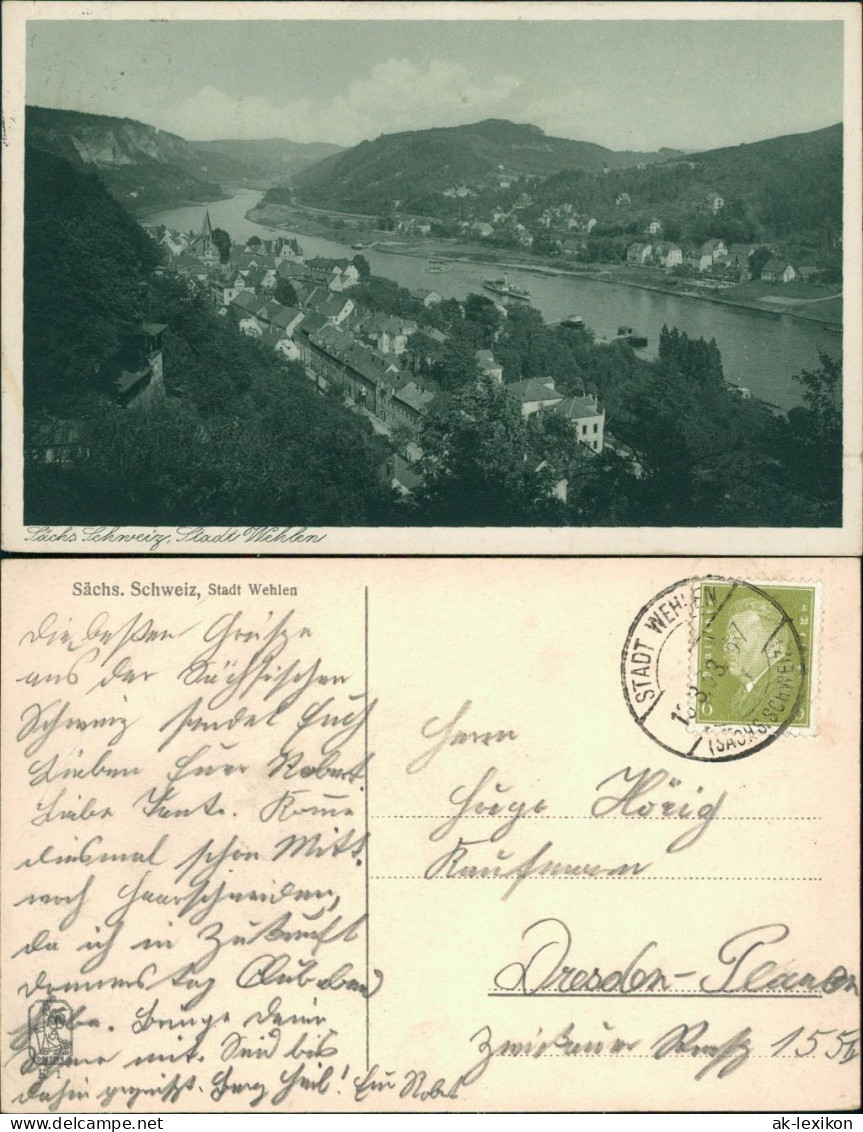 Sächs. Schweiz, Stadt Wehlen
Sächs. Schweiz, Stadt Wehlen
Die besten Grüße
aus der Sächsischen
Schweiz sendet Euch
Lieben Euer Robert.
Liebe Tante. Komme
diesmal schon Mitt-
woch Haarschneiden,
da ich in Zukunft
Donnerstag Clubabend
habe. Bringe Deine
mit. Seid bis
dahin gegrüßt. Berg Heil! Eur Robert
STADT WEHLEN
(SÄCHS. SCHWEIZ)
Herrn
Hugo Hörig
Kaufmann
Dresden-Plauen
Zwickauer Straße 155
ak-lexikon